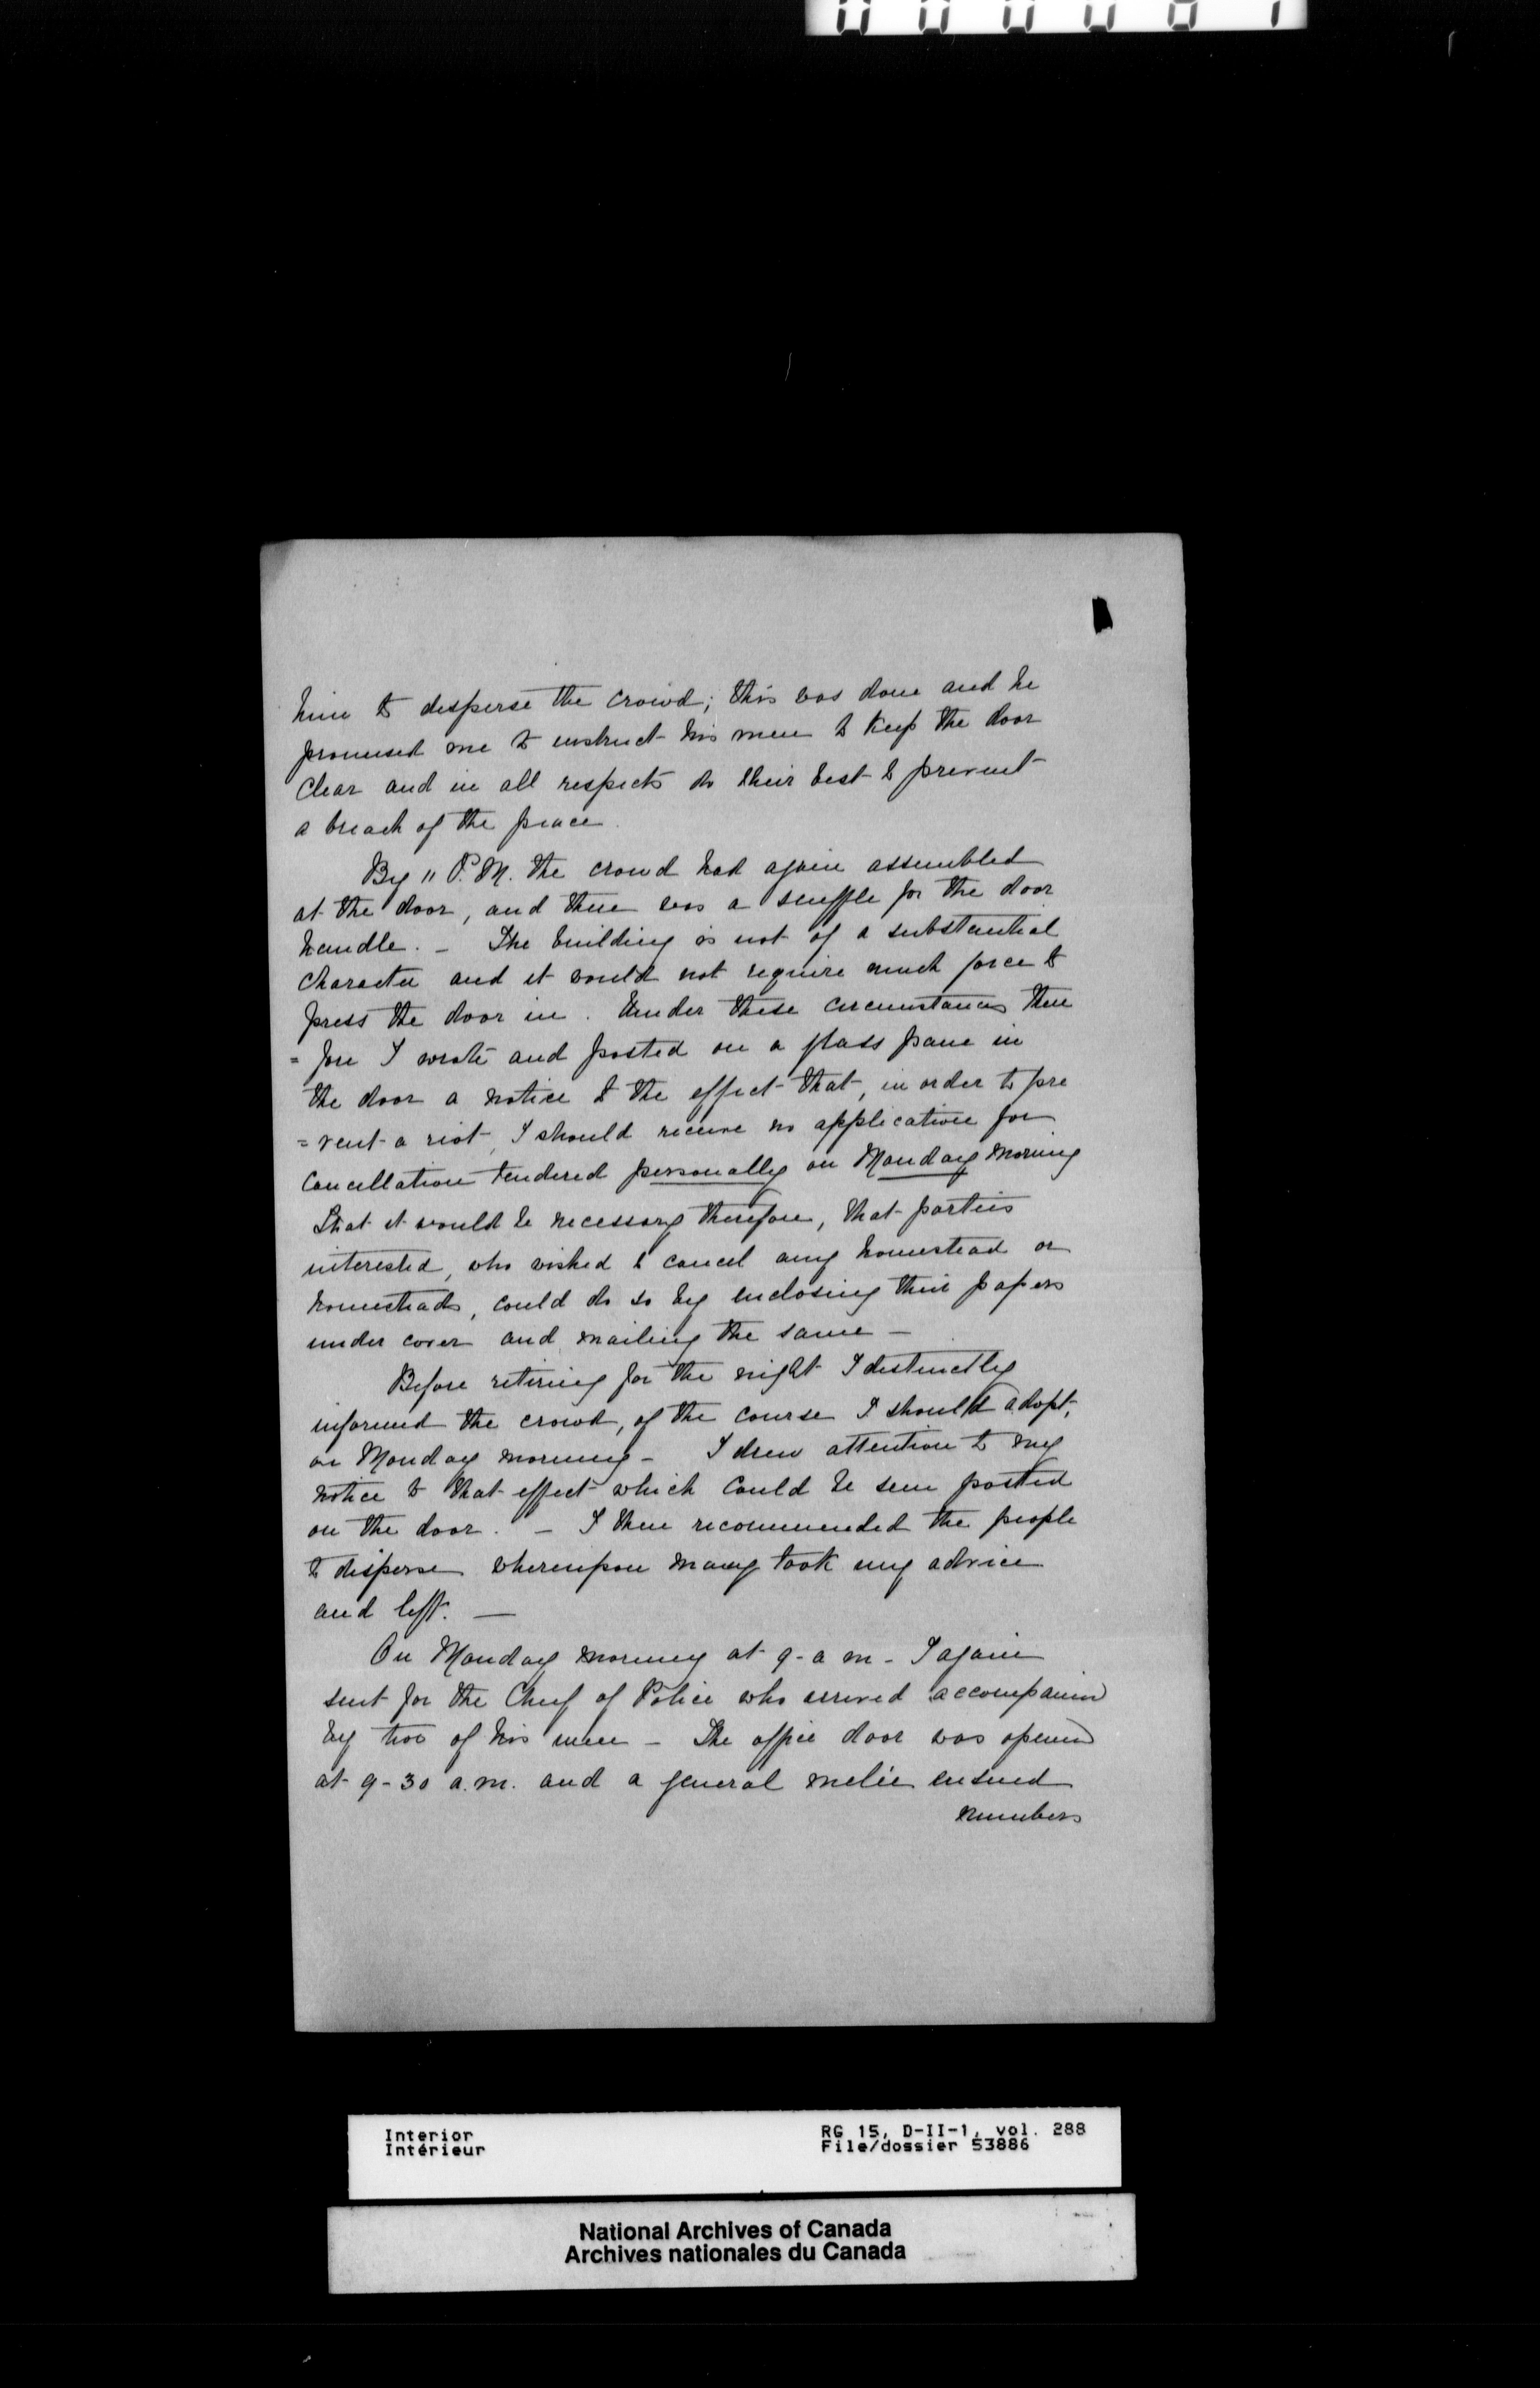 him to disperse the crowd; this was done and he
promised me to instruct his men to keep the door
clear and in all respects do their best to prevent
a breach of the peace.
By 11 P.M. the crowd had again assembled
at the door, and there was a scuffle for the door
handle. – The building is not of a substantial
character and it would not require much force to
press the door in. Under these circumstances there
= fore I wrote and posted on a glass pane in
the door a notice to the effect that, in order to pre
= vent a riot, I should receive no application for
cancellation tendered personally on Monday morning
That it would be necessary therefore, that parties
interested, who wished to cancel any homestead or
homesteads, could do so by enclosing their papers
under cover and mailing the same –
Before retiring for the night I distinctly
informed the crowd, of the course I should adopt,
on Monday morning – I drew attention to my
notice to that effect which could be seen posted
on the door. – I then recommended the people
to disperse whereupon many took my advice
and left. —
On Monday morning at 9- a m - I again
sent for the Chief of Police who arrived accompanied
by two of his men – The office door was opened
at 9-30 a.m. and a general melée ensued
numbers
Interior RG 15, D-II-1, vol. 288
Intérieur File/dossier 53886
National Archives of Canada
Archives nationales du Canada